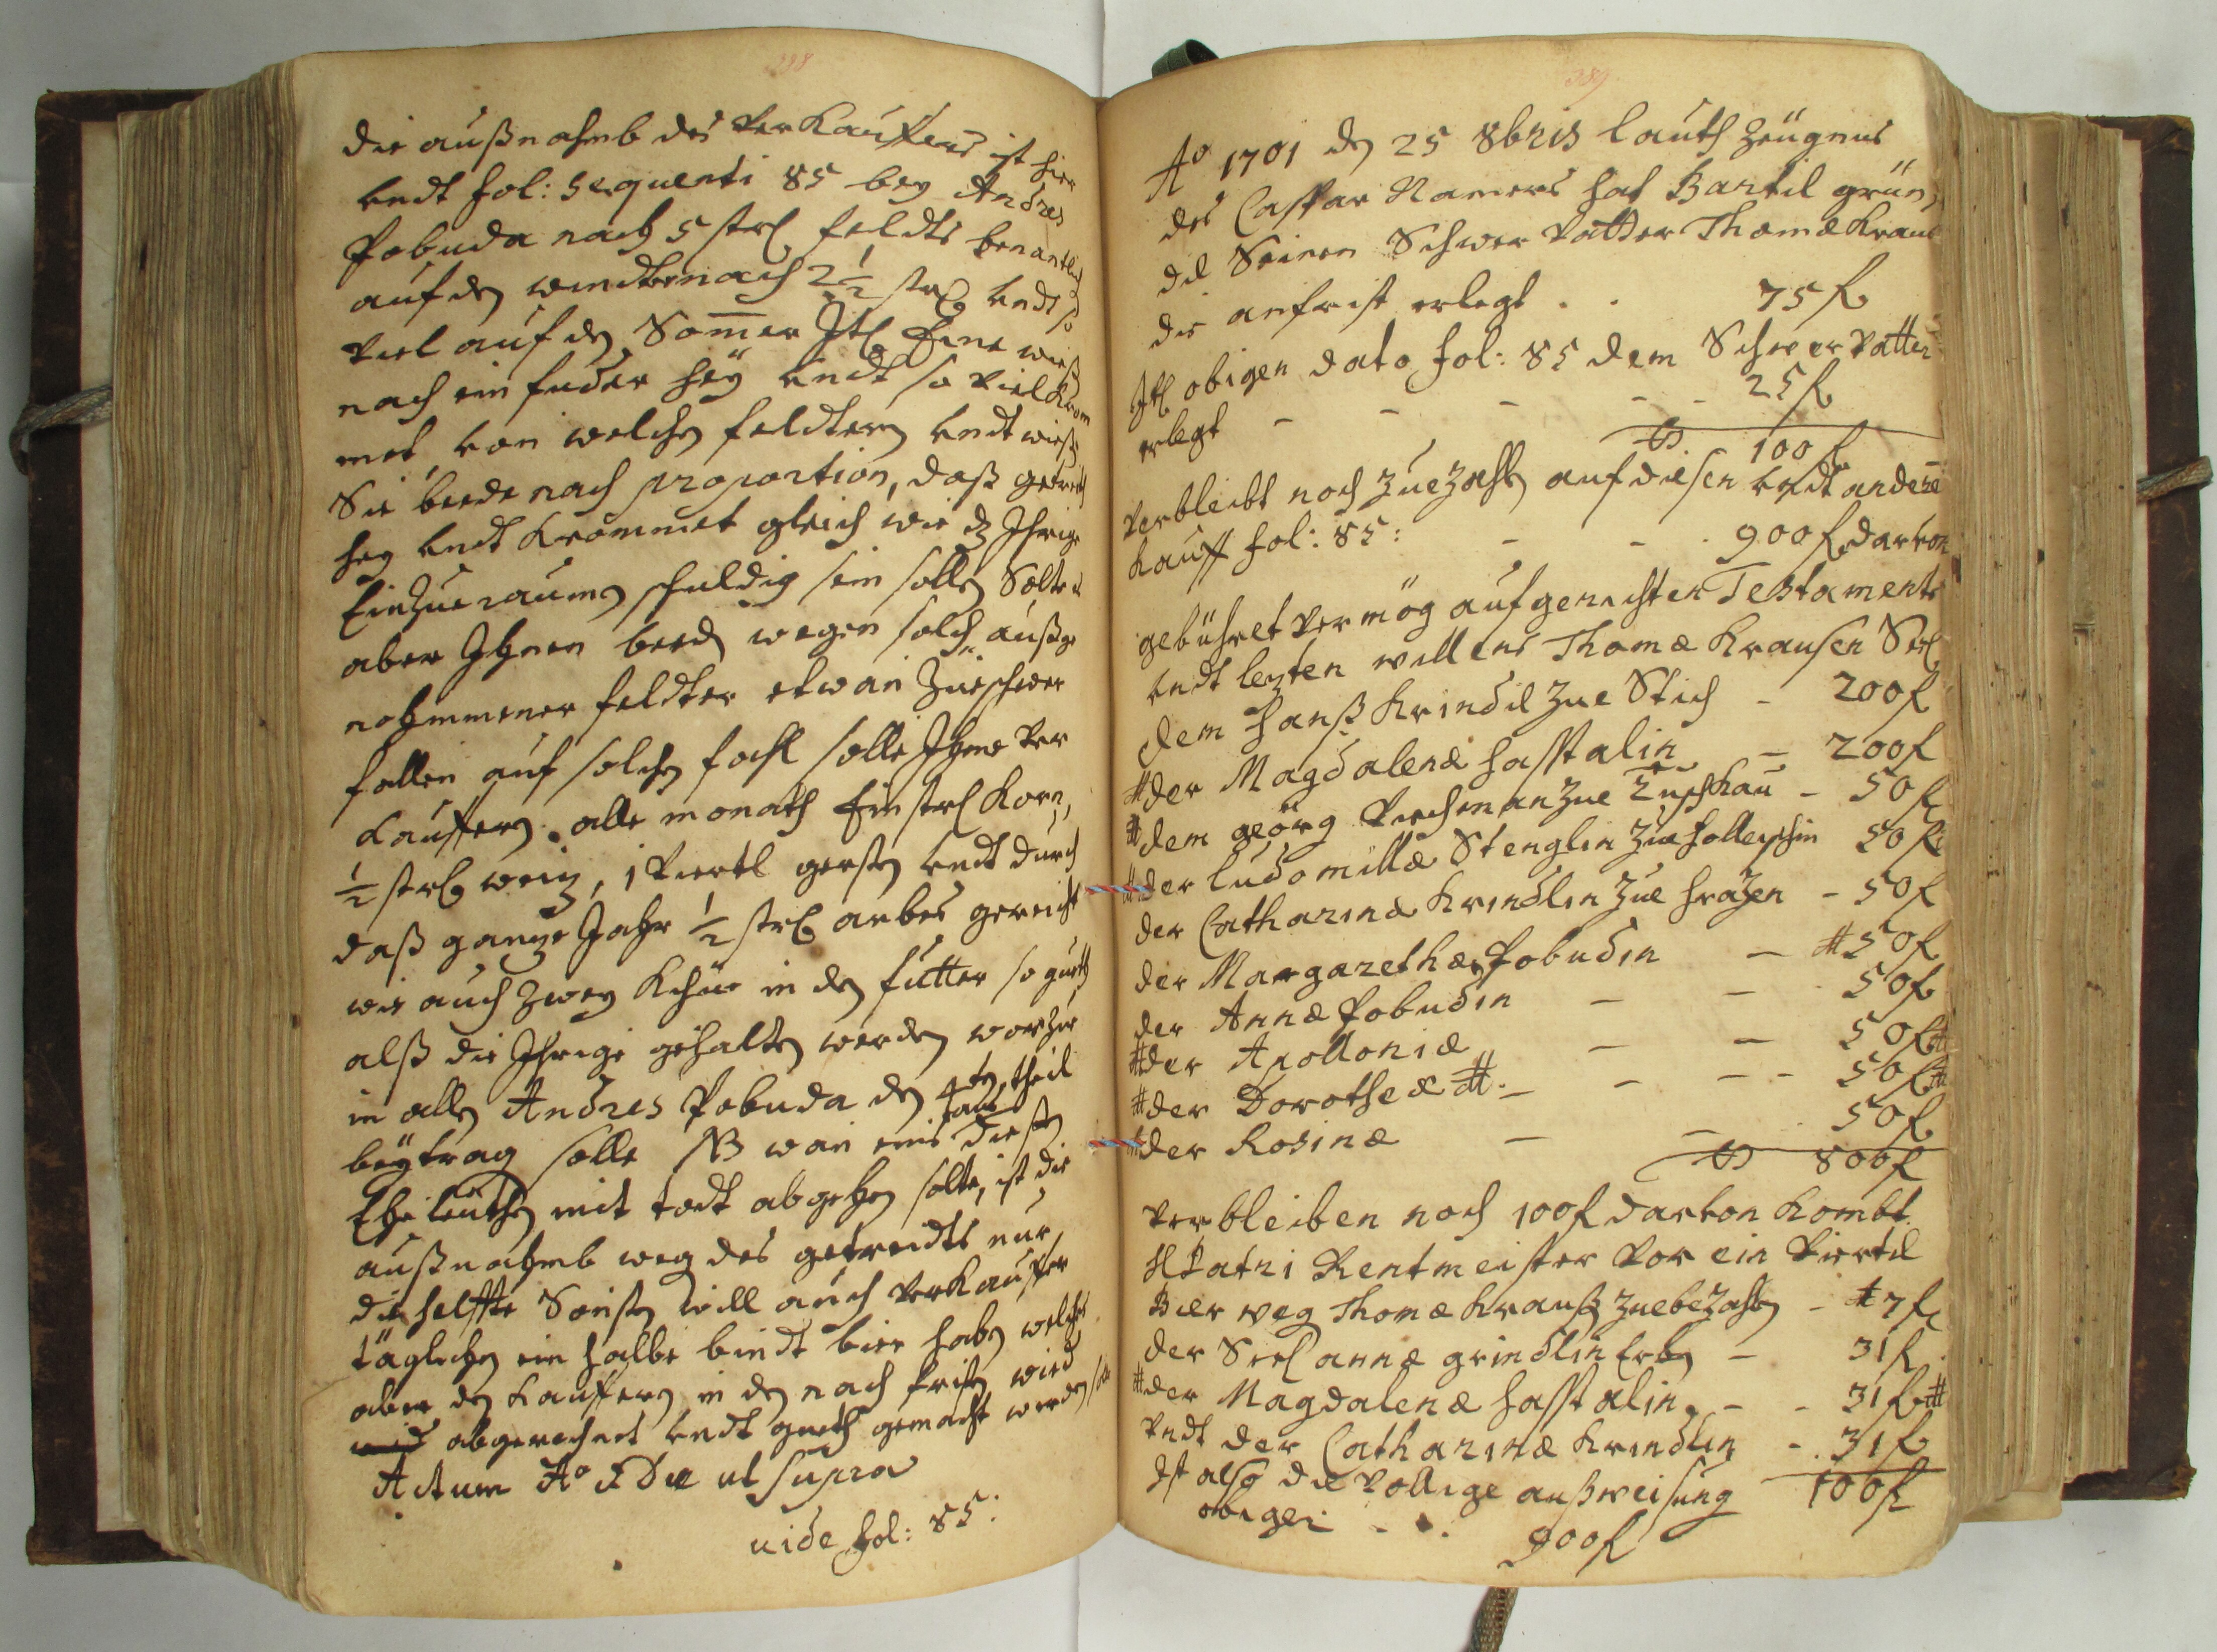 388
die außnahmb des Verkauffers ist hier
vndt fol: sequenti 85 bey Andres
Pobuda nach 5 strl feldts benantlich
auf den winter nach 2 1/2 strl vndt so
viel auf den Sommer Itl Eine wieß
nach ein fuder hey vndt so viel krom
met, von welchen feldtern vndt wießen
Sie beede nach proportion, daß getreidt
hey vndt krommet gleich wie dz Ihrige
Einzueraumen schuldig sein sollen Solte
aber Ihnen beeden wegen solch außge
nohmmener feldter etwan zueschwer
fallen auf solchen fahl solle Ihme Ver
kauffern alle monath Ein strl korn,
1/2 strl weiz, 1 Viertl gersten vndt durch
daß ganze Jahr 1/2 strl arbes gereicht
wie auch zwey Kühe in den futter so guth
alß die Ihrige gehalten werden worzue
in allen Andres Pobuda den 4ten theil
beytrag solle NB wan eins aus diesen
Eheleuthen mit todt abgehen solte, ist die
außnahmb weg des getreidts nur
die helffte Sonsten will auch Verkauffer
täglichen ein halbe bindt bier haben welches
aber den Kauffern in den nach fristen wird
abgerechnet vndt gueth gemacht werden solle
Actum Ao & Die ut supra
uide fol: 85:
389
Ao 1701 den 25 8bris lauth Zeügnus
des Caspar Namers hat Bartil grün,
dil Seinen Schwer Vatter Thomæ Kraus
die anfrist erlegt . . 75 f
Itl obigen dato fol: 85 dem Schwer Vatter
erlegt - - - - - 25 f
100 f
Verbleibt noch zuezahlen auf diesen vndt andern
Kauff fol: 85: - - . 900 f darvon
gebühret vermög aufgerichten Testaments
vndt lezten willens Thomæ Krausen Seel
dem Hanß Krindil zue Stich - 200 f
# der Magdalenæ Hasstalin - 200 f
# dem geörg Pechman zue Tuschkau - 50 f
# der Ludomillæ Stenglin zue Holleischin 50 f
der Catharinæ Krindlin zue Hrazen - 50 f
der Margarethæ Pobudin - # 50 f
der Annæ Pobudin - - 50 f
# der Apolloniæ - - 50 f #
# der Dorotheæ # - - - - 50 f #
# der Rosinæ - - 50 f
800 f
Verbleiben noch 100 f darvon kombt
H Patri Rentmeister vor ein Viertel
Bier weg Thomæ Krauß zuebezahlen - # 7 f
der Seel annæ grindlin Erben - 31 f
# der Magdalenæ Hasstalin - - 31 f #
Vndt der Catharinæ Krindlin - 31 f
Ist also die Vollige außweisung 100 f
obiger - . . 900 f